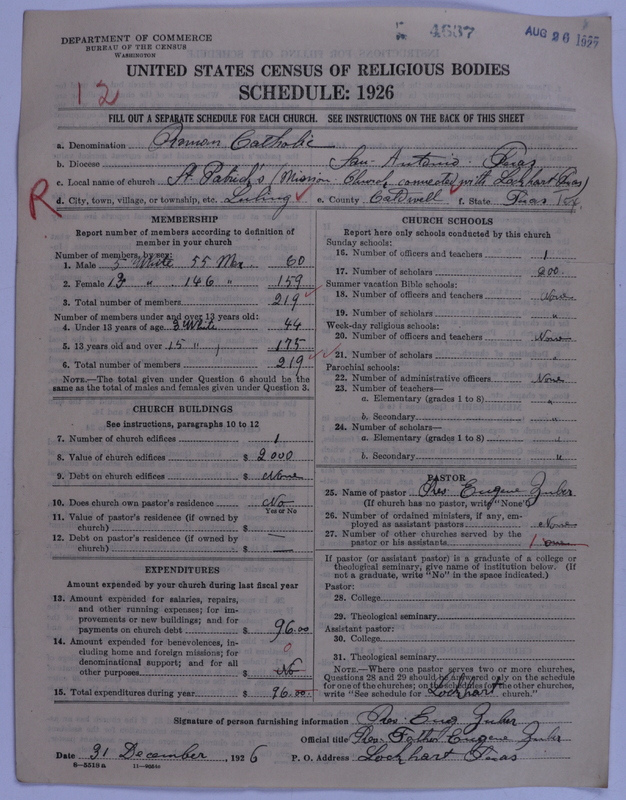 DEPARTMENT OF COMMERCE
BUREAU OF THE CENSUS
WASHINGTON
4687
AUG 26 1927
UNITED STATES CENSUS OF RELIGIOUS BODIES
SCHEDULE: 1926
12
FILL OUT A SEPARATE SCHEDULE FOR EACH CHURCH. SEE INSTRUCTIONS ON THE BACK OF THIS SHEET
a. Denomination Roman Catholic
b. Diocese San Antonio Texas
c. Local name of church St Patrick's (Mission Church connected with Lockhart Texas)
R
d. City, town, village, or township, etc. Luling e. County Caldwell f. State Texas
MEMBERSHIP
Report number of members according to definition of member in your church
Number of members, by sex:
1. Male 5 White 55 Mex 60
2. Female 13 " 146 " 159
3. Total number of members 219
Number of members under and over 13 years old:
4. Under 13 years of age 3 White 44
5. 13 years old and over 15 " 175
6. Total number of members 219
NOTE.—The total given under Question 6 should be the same as the total of males and females given under Question 3.
CHURCH BUILDINGS
See instructions, paragraphs 10 to 12
7. Number of church edifices 1
8. Value of church edifices $ 2000
9. Debt on church edifices $ None
10. Does church own pastor's residence No
Yes or No
11. Value of pastor's residence (if owned by church) $
12. Debt on pastor's residence (if owned by church) $ —
EXPENDITURES
Amount expended by your church during last fiscal year
13. Amount expended for salaries, repairs, and other running expenses; for improvements or new buildings; and for payments on church debt $ 96.00
14. Amount expended for benevolences, including home and foreign missions; for denominational support; and for all other purposes $ No
0
15. Total expenditures during year $ 96.00
CHURCH SCHOOLS
Report here only schools conducted by this church
Sunday schools:
16. Number of officers and teachers 1
17. Number of scholars
Summer vacation Bible schools:
18. Number of officers and teachers None
19. Number of scholars "
Week-day religious schools:
20. Number of officers and teachers None
21. Number of scholars "
Parochial schools:
22. Number of administrative officers None
23. Number of teachers—
a. Elementary (grades 1 to 8) "
b. Secondary "
24. Number of scholars—
a. Elementary (grades 1 to 8) "
b. Secondary "
PASTOR
25. Name of pastor Rev. Eugene Zuber
(If church has no pastor, write "None")
26. Number of ordained ministers, if any, employed as assistant pastors None
27. Number of other churches served by the pastor or his assistants 1
If pastor (or assistant pastor) is a graduate of a college or theological seminary, give name of institution below. (If not a graduate, write "No" in the space indicated.)
Pastor:
28. College
29. Theological seminary
Assistant pastor:
30. College
31. Theological seminary
NOTE.—Where one pastor serves two or more churches, Questions 28 and 29 should be answered only on the schedule for one of the churches; on the schedules for the other churches, write "See schedule for Lockhart church."
Signature of person furnishing information Rev. Eug Zuber
Official title Rev. Father Eugene Zuber
Date 31 December, 1926 P. O. Address Lockhart Texas
8—5519a